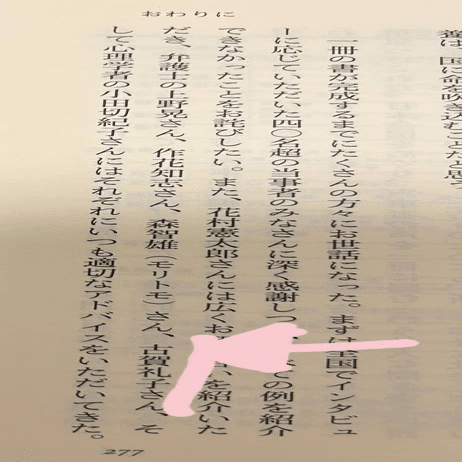 おわりに
養は、国に命を吹き込むことだと思
一冊の書が完成するまでにたくさんの方々にお世話になった。まずは全国でインタビュ
ーに応じていただいた四〇名超の当事者のみなさんに深く感謝しつ ての例を紹介
できなかったことをお詫びしたい。また、花村憲太郎さんには広くお いを紹介いた
だき、弁護士の上野晃さん、作花知志さん、森智雄（モリトモ）さん、古賀礼子さん、そ
して心理学者の小田切紀子さんにはそれぞれにいつも適切なアドバイスをいただいてきた。
277